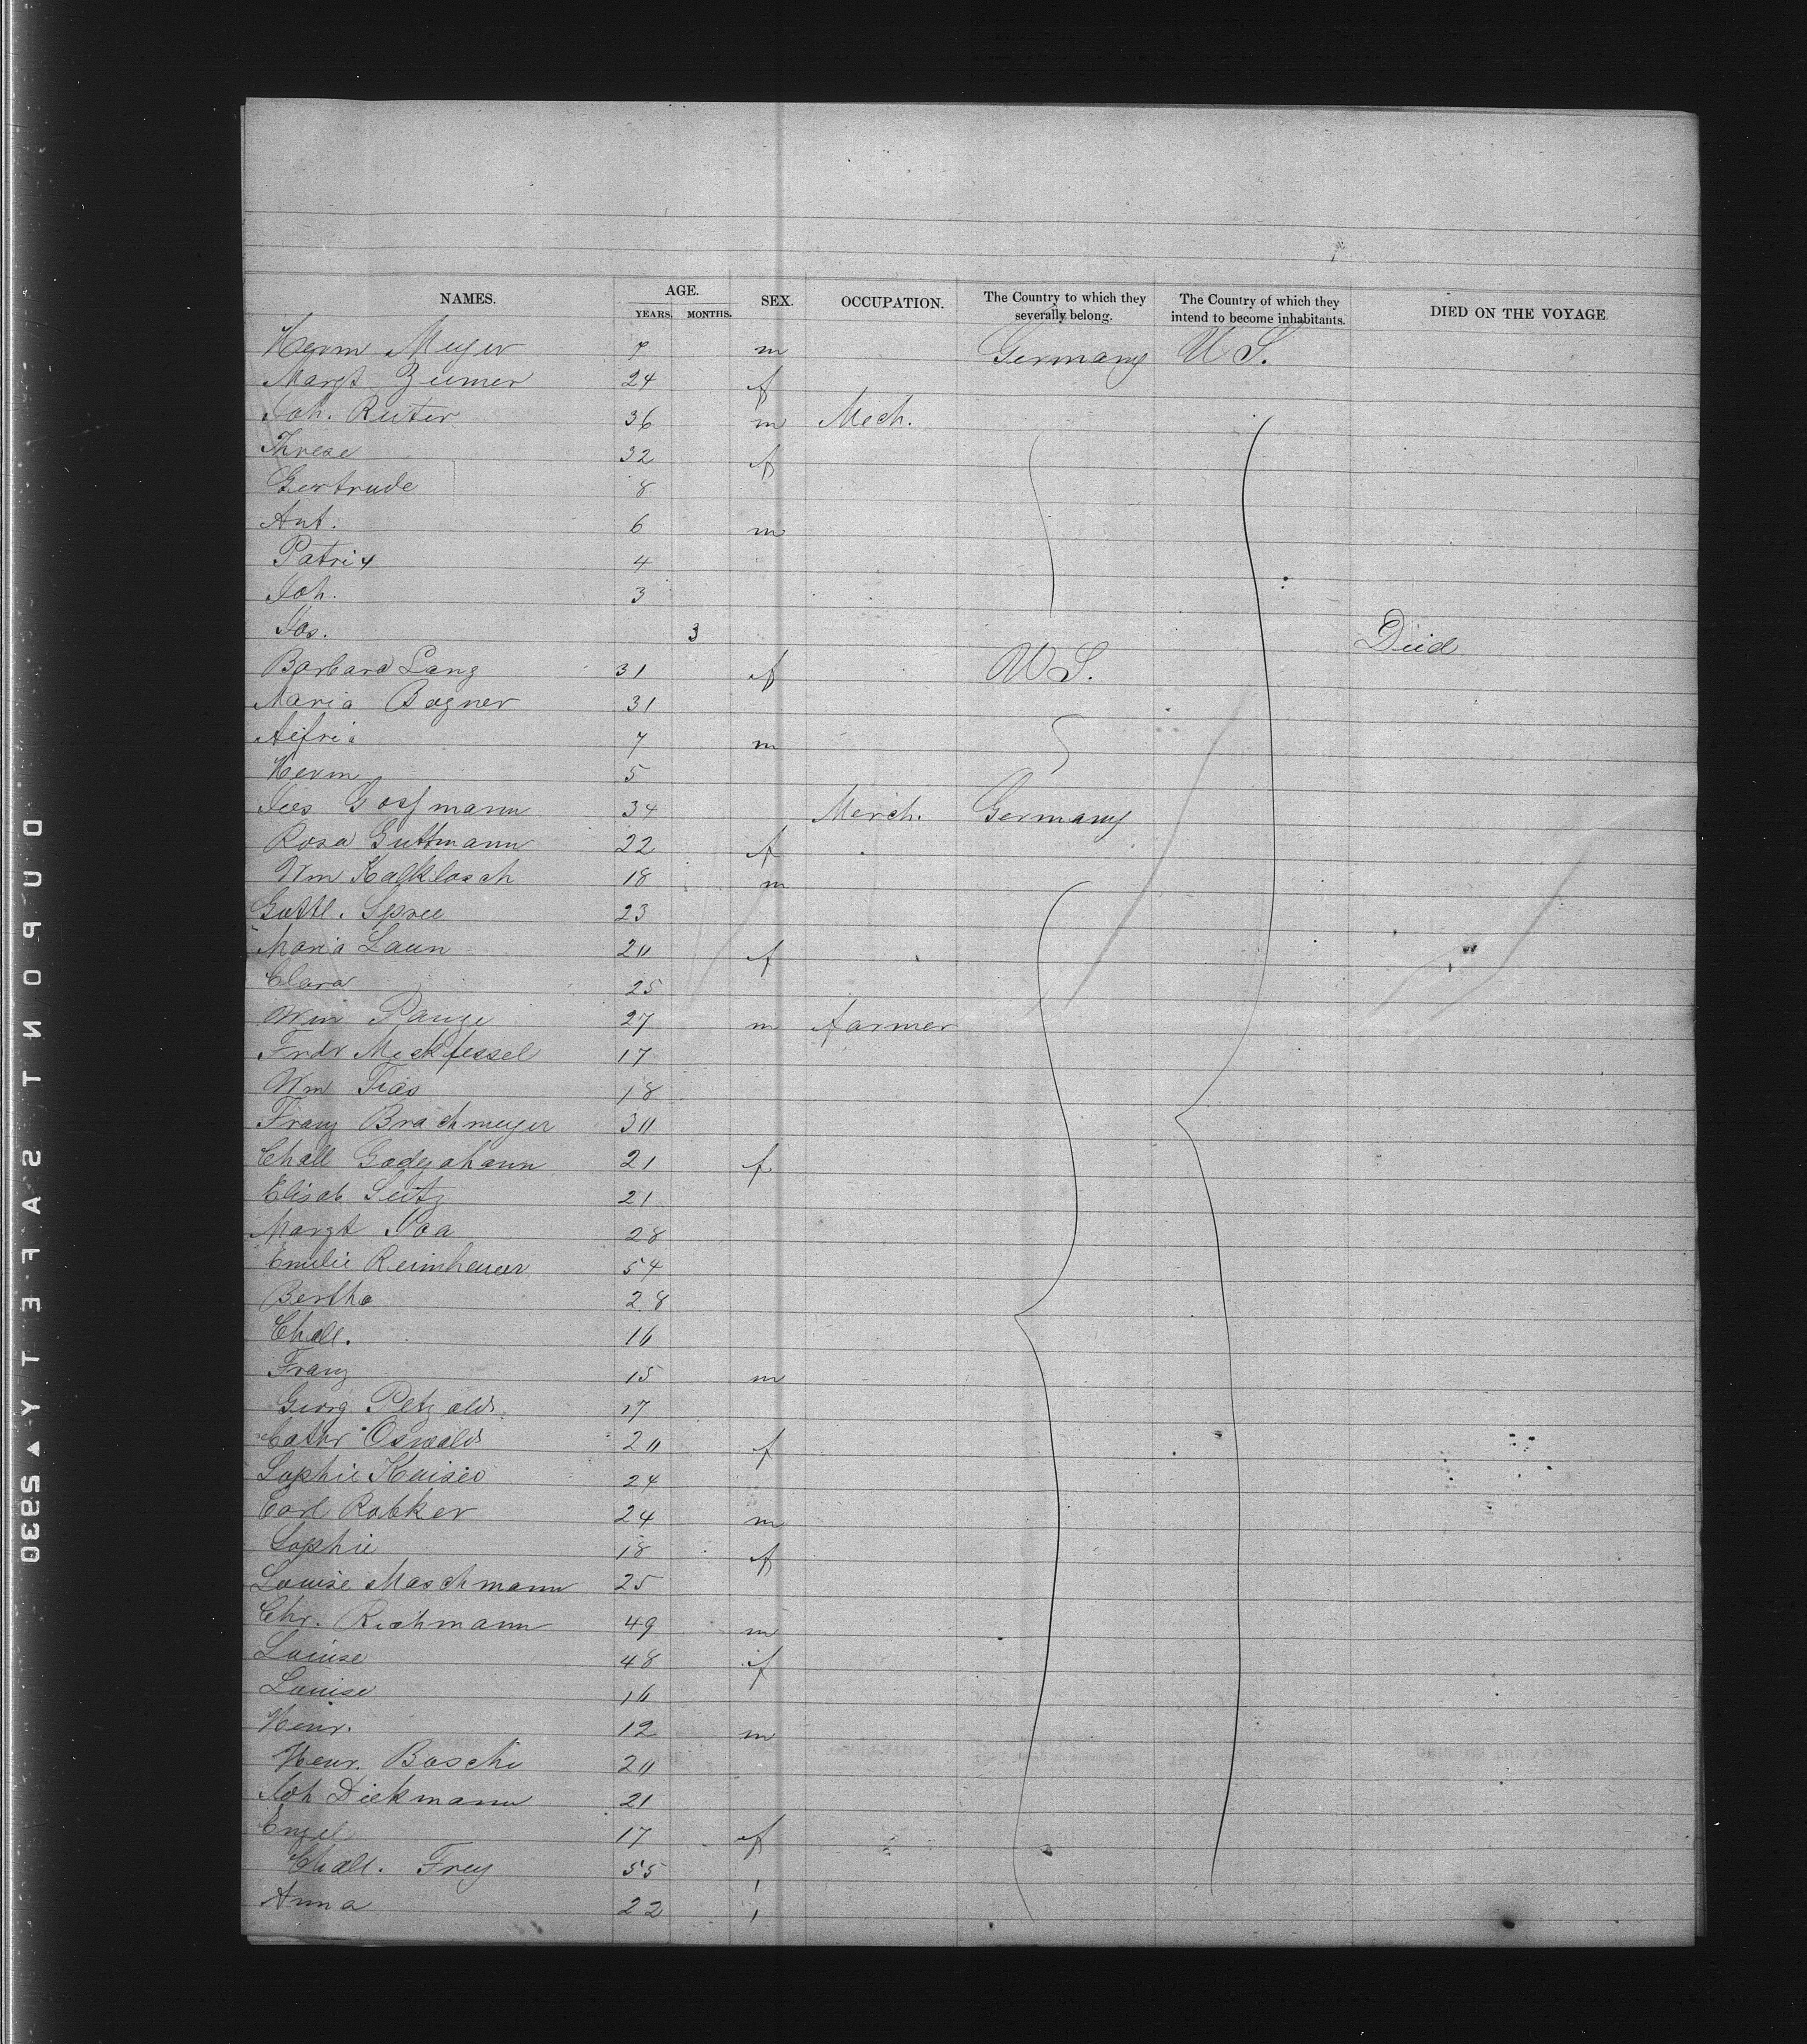 NAMES. AGE. SEX. OCCUPATION. The Country to which they severally belong. The Country of which they intend to become inhabitants. DIED ON THE VOYAGE.
YEARS. MONTHS.
Herm Meyer 9 m Germany U S.
Margt Zumer 24 f
Joh. Reiter 36 m Mech.
Threse 32 f
Gertrude 8
Ant. 6 m
Patrix 4
Joh. 3
Jos. 3 Died
Barbara Lang 31 f U S.
Maria Bagner 31
7 m
Herm 5
34 Merch. Germany
Rosa Guttmann 22 f
Wm Kalklosch 18 m
Gottl. Spree 23
Maria Laun 20 f
Clara 25
Wm Range 27 m farmer
Fredr Meckfessel 17
Wm Tias 18
Franz Brachmeyer 30
Chall 21 f
Elisab Seitz 21
Margt Voa 28
Emilie Reimheuer 54
Bertha 28
Chall. 16
Franz 15 m
Georg Petzold 17
Cathr Oswald 20 f
Sophie Kaiser 24
Carl Rabker 24 m
Sophie 18 f
Louise Maschmann 25
Chr. Richmann 49 m
Louise 48 f
Louise 16
Heinr. 12 m
Henr. Bosche 20
Joh Diekmann 21
Engel 17 f
Chall. Frey 55 "
Anna 22 "
DUPONT SAFETY ▲ S2930